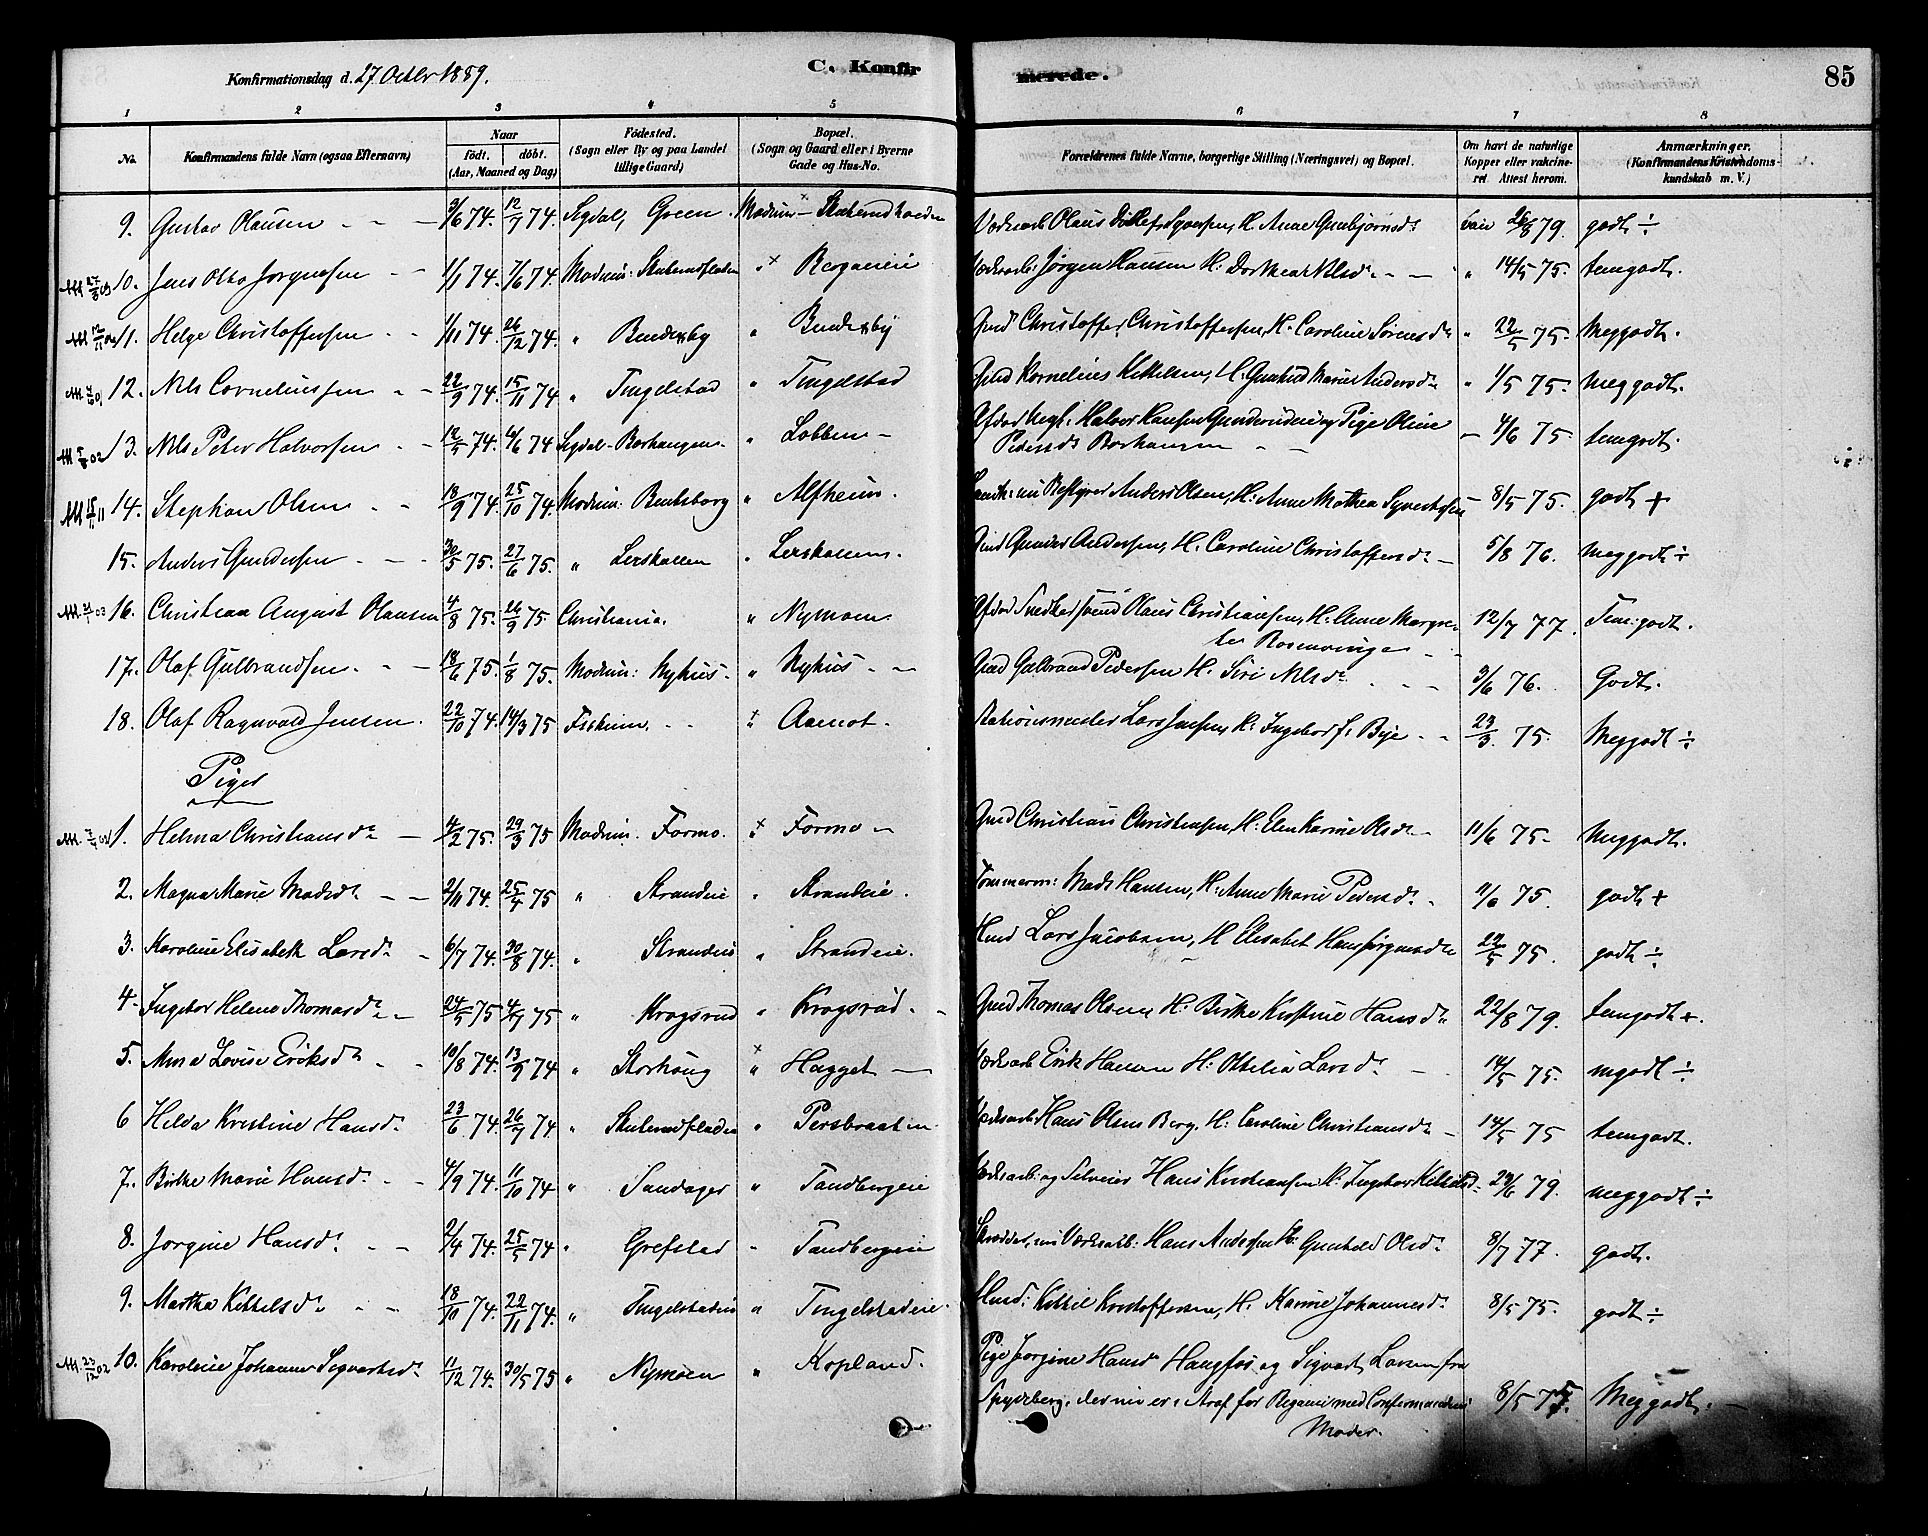 Konfirmationsdag d. 27 Octbr 1889. C. Konfirmerede. 85
1 2 3 4 5 6 7 8
No. Konfirmandens fulde Navn (ogsaa Efternavn) Naar födt. döbt. (Aar, Maaned og Dag) Födested. (Sogn eller By og paa Landet tillige Gaard) Bopæl. (Sogn og Gaard eller i Byerne Gade og Hus-No. Forældrenes fulde Navne, borgerlige Stilling (Næringsvei) og Bopæl. Om havt de naturlige Kopper eller vakcineret Attest herom. Anmærkninger. (Konfirmandens Kristendomskundskab m. V.)
9. Gustav Olausen 3/6 74. 12/7 74. Sigdal, Green. Modum - Værksarb Olaus Anne Gunbjørnsd. 79. godt ÷
10. Jens Otto Jørgensen 1/1 74. 7/6 74. Modum: " Bergeneie Værksarb: Jørgen Hansen H: Dorthea Nilsd. " 14/5 75. temgodt.
11. Helge Christoffersen 1/11 74. 26/12 74. " Bendixby " Bendixby Gmd Christoffer Christoffersen, H. Caroline Sørensd. " 22/5 75. Meggodt.
12. Nils Corneliussen 22/9 74. 15/11 74 " Tingelstad " Tingelstad Gmd Kornelius Kittelsen, H: Gunhild Marie Andersd. " 1/5 75. meggodt.
13. Nils Peter Halvorsen 12/5 74. 6/6 74 Sigdal - Borhaugen. " Lobben - Halvor Hansen Pige Oline
Pedersd. Borhaugen 4/6 75. temgodt.
14. Stephan Olsen 18/9 74. 25/10 74. Modum: Bentsborg " Alfheim. Bestyrer Anders Olsen, H: Anne Mathea Syvertsen 8/5 75. godt +
15. Anders Gundersen 30/5 75. 27/6 75. " Lerskallen " Lerskallen. Gmd Gunder Andersen, H. Caroline Christoffersd. 5/8 76. meggodt ÷
16. Christian August Olausen 4/8 75. 26/9 75. Christiania. " Nymoen Snedkersvend Olaus Christiansen, H: Anne Margre-
the Rosenvinge 12/7 77. Tem: godt.
17. Olaf Gulbrandsen 18/6 75. 1/8 75. Modum: Nyhus. " Nyhus Gmd Gulbrand Pedersen H. Siri Nilsd. 3/6 76. Godt.
18. Olaf Ragnvald Jensen. 22/10 74. 14/3 75 Fiskum. " Aamot. Stationsmester Lars Jensen, H: Ingebor f. Bye 23/3 75. Meggodt ÷
Piger
1. Helma Christiansd. 4/2 75. 29/3 75 Modum. Formo. " Formo Gmd Christian Christensen, H: Elen Karine Olsd. 11/6 75 - Meggodt.
2. Magna Marie Madsd. 2/11 74. 25/4 75 " Strandeie " Strandeie. Tømmerm: Mads Hansen, H: Anne Marie Pedersd. 75. godt +
3. Karoline Elisabeth Larsd. 6/7 74. 30/8 74. " Strandeie " Strandeie. Hmd Lars Jacobsen, H Elisabet Hansjørgensd. 22/5 75. godt ÷
4. Ingebor Helene Thomasd. 24/5 75 4/7 75 " Krogsrud " Krogsrud. Gmd Thomas Olsen H: Birthe Kirstine Hansd. 22/8 79. temgodt +.
5. Anna Lovise Eriksd. 10/8 74. 13/9 74 " Storhoug " Hagget Værksarb Erik Hansen H: Othelia Larsd. 14/5 75. mgodt ÷
6 Hilda Kristine Hansd. 23/6 74. 26/7 74 " " Persbraaten Værksarb Hans Olsen Berg, H: Caroline Christiansd. 14/5 75 temgodt.
7. Birthe Marie Hansd. 4/9 74. 11/10 74 " Sandager " Tandbergeie Værksarb: og Selveier Hans Kristiansen H: Ingebor Kittilsd. 79. meggodt ÷
8. Jørgine Hansd. 2/4 74. 25/5 74 " Grefstad " Tandbergeie Værksarb: Hans Andersen H: Gunhild Olsd. 8/7 77. godt.
9. Martha Kittelsd. 18/10 74. 22/11 74. " Tingelstadeie " Tingelstadeie. Hmd: Kittil Kristoffersen, H. Karine Johannesd. 8/5 75. godt ÷
10. Karoline Johanne Sigvartsd. 11/12 74. 30/5 75 " Nymoen " Kopland. Pige Jørgine Hansd Haugfos og Sigvart Larsen fra
Spydeberg, der nu er i Straf for Bigami med Confirmandens
Moder. 8/5 75. Meggodt.